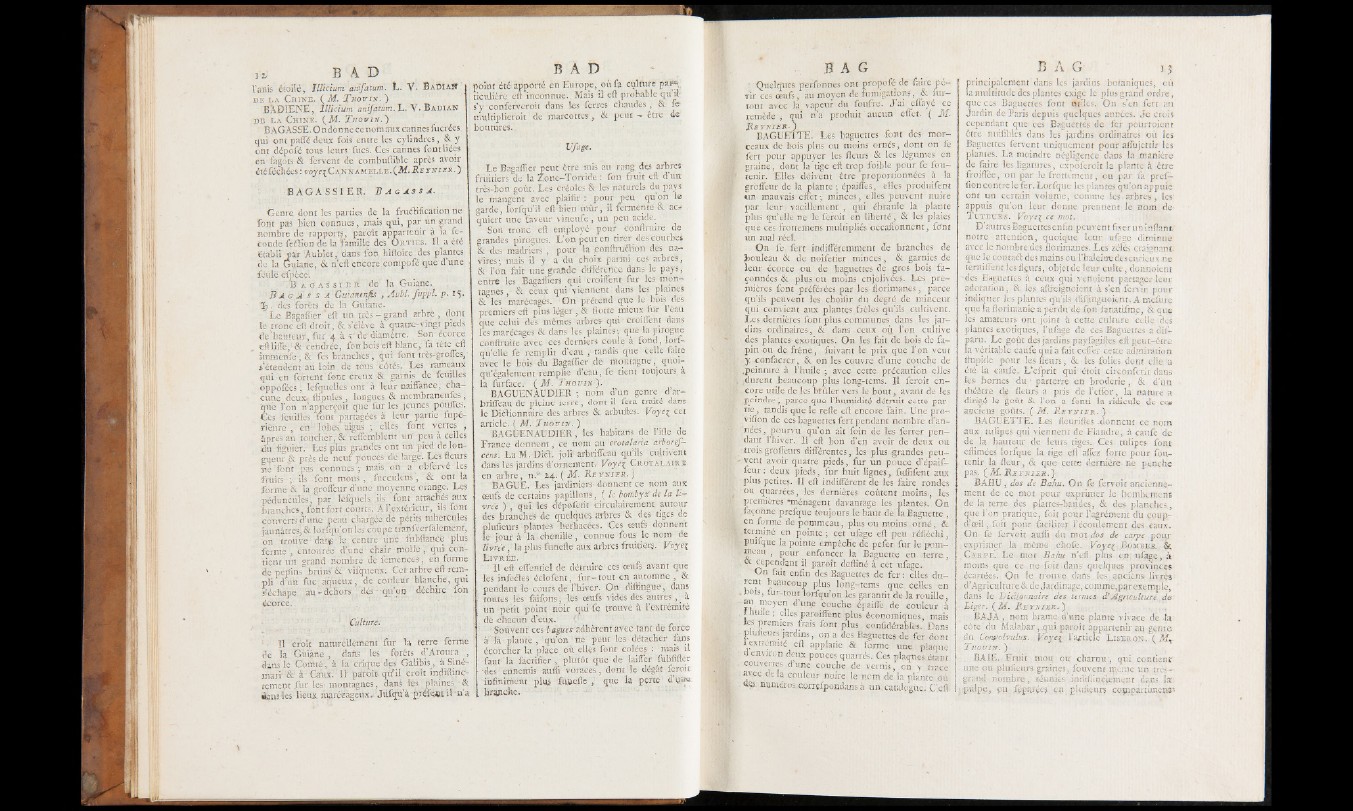 12 B A D
l'anis étoilé, Illicium anisatum. L. V. BADIAN
DE LA CHINE. ( M. THOUIN. )
BADIENE, Illicium anisatum. L. V. BADIAN
DE LA CHINE. ( M. THOUIN. )
BAGASSE. On donne ce nom aux cannes sucrées
qui ont passé deux fois entre les cylindres, & y
ont déposé tous leurs sucs. Ces cannes sont liées
en fagots & servent de combustible après avoir
été séchées : voyez CANNAMELLE. (M. REYNIER. )
BAGASSIER, BAGASSA.
Genre dont les parties de la fructification ne
sont pas bien connues, mais qui, par un grand
nombre de rapports, paroît appartenir à la seconde
section de la famille des ORTIES. Il a été
établi par Aublet, dans son histoire des plantes
de la Guiane, & n'est encore composé que d'une
seule espèce.
BAGASSIER de la Guiane.
BAGASSA Guianensis, Aubl. suppl. p. 15.
♄ des forêts de la Guiane.
Le Bagassier est un très-grand arbre, dont
le tronc est droit, & s'élève à quatre-vingt pieds
de hauteur, sur 4 à 5 de diamètre. Son écorce
est lisse, & cendrée, son bois est blanc, sa tête est
immense, & ses branches, qui sont très-grosses,
s'étendent au loin de tous côtés. Les rameaux
qui en sortent sont creux & garnis de feuilles
opposées ; lesquelles ont à leur naissance, chacune
deux stipules, longues & membraneuses,
que l'on n'apperçoit que sur les jeunes pousses.
Ces feuilles sont partagées à leur partie supérieure,
en lobes aigus ; elles sont vertes,
âpres au toucher, & ressemblent un peu à celles
du figuier. Les plus grandes ont un pied de longueur
& près de neuf pouces de large. Les fleurs
ne sont pas connues ; mais on a observé les
fruits ; ils sont mous, succulens, & ont la
forme & la grosseur d'une moyenne orange. Les
pédoncules, par lesquels ils sont attachés aux
branches, sont fort courts. A l'extérieur, ils sont
couverts d'une peau chargée de petits tubercules
jaunâtres, & lorsqu'on les coupe transversalement,
on trouve dans le centre une substance plus
ferme, entourée d'une chair molle, qui contient
un grand nombre de semences, en forme
de pepins bruns & visqueux. Cet arbre est rempli
d'un suc aqueux, de couleur blanche, qui
s'échape au-dehors dès qu'on déchire son
écorce.
Culture.
Il croît naturellement sur la terre ferme
de la Guiane, dans les forêts d'Aroura,
dans le Comté, à la crique des Galibis, à Sinémari
& à Caux. Il paroît qu'il croît indistinctement
sur les montagnes, dans les plaines &
dans les lieux marécageux. Jusqu'à présent il n'a
B A D
point été apporté en Europe, où sa culture particulière
est inconnue. Mais il est probable qu'il
s'y conserveroit dans les serres chaudes, & se
multiplieroit de marcottes, & peut-être de
boutures.
Usage.
Le Bagassier peut être mis au rang des arbres
fruitiers de la Zone-Torride : son fruit est d'un
très-bon goût. Les créoles & les naturels du pays
le mangent avec plaisir : pour peu qu'on le
garde, lorsqu'il est bien mûr, il fermente & acquiert
une saveur vineuse, un peu acide.
Son tronc est employé pour construire de
grandes pirogues. L'on peut en tirer des courbes
& des madriers, pour la construction des navires ;
mais il y a du choix parmi ces arbres,
& l'on fait une grande différence dans le pays,
entre les Bagassiers qui croissent sur les montagnes,
& ceux qui viennent dans les plaines
& les marécages. On prétend que le bois des
premiers est plus léger, & flotte mieux sur l'eau
que celui des mêmes arbres qui croissent dans
les marécages & dans les plaines ; que la pirogue
construite avec ces derniers coule à fond, lorsqu'elle
se remplit d'eau, tandis que celle faite
avec le bois du Bagassier de montagne, quoiqu'également
remplie d'eau, se tient toujours à
la surface. ( M. THOUIN ).
BAGUENAUDIER ; nom d'un genre d'arbrisseau
de pleine terre, dont il sera traité dans
le Dictionnaire des arbres & arbustes. Voyez cet
article. ( M. THOUIN. )
BAGUENAUDIER, les habitans de l'isle de
France donnent, ce nom au crotalaria arborescens.
La M. Dict. joli arbrisseau qu'ils cultivent
dans les jardins d'ornement. Voyez CROTALAIRE
en arbre, n.° 24. ( M. REYNIER. )
BAGUE. Les jardiniers donnent ce nom aux
œufs de certains papillons, ( le bombyx de la livrée ),
qui les déposent circulairement autour
des branches de quelques arbres & des tiges de
plusieurs plantes herbacées. Ces œufs donnent
le jour à la chenille, connue sous le nom de
livrée, la plus funeste aux arbres fruitiers. Voyez
LIVRÉE.
Il est essentiel de détruire ces œufs avant que
les insectes éclosent, sur-tout en automne, &
pendant le cours de l'hiver. On distingue, dans
toutes les saisons, les œufs vides des autres, à
un petit point noir qui se trouve à l'extrémité
de chacun d'eux.
Souvent ces bagues adhèrent avec tant de force
à la plante, qu'on ne peut les détacher sans
écorcher la place où elles sont colées : mais il
faut la sacrifier, plutôt que de laisser subsister
des ennemis aussi voraces, dont le dégât seroit
infiniment plus funeste, que la perte d'une
branche.
B A G
Quelques personnes ont proposé de faire périr
ces œufs, au moyen de fumigations, & surtout
avec la vapeur du soufre. J'ai essayé ce
remède, qui n'a produit aucun effet. ( M.
REYNIER. )
BAGUETTE. Les baguettes sont des morceaux
de bois plus ou moins ornés, dont on se
sert pour appuyer les fleurs & les légumes en
graine, dont la tige est trop foible pour se soutenir.
Elles doivent être proportionnées à la
grosseur de la plante ; épaisses, elles produisent
un mauvais effet ; minces, elles peuvent nuire
par leur vacillement, qui ébranle la plante
plus qu'elle ne le seroit en liberté, & les plaies
que ces frottemens multipliés occasionnent, sont
un mal réel.
On se sert indifféremment de branches de
bouleau & de noisetier minces, & garnies de
leur écorce ou de baguettes de gros bois façonnées
& plus ou moins enjolivées. Les premières
sont préférées par les florimanes, parce
qu'ils peuvent les choisir du degré de minceur
qui convient aux plantes frêles qu'ils cultivent.
Les dernières sont plus communes dans les jardins
ordinaires, & dans ceux où l'on cultive
des plantes exotiques. On les fait de bois de sapin
ou de frêne, suivant le prix que l'on veut
y consacrer, & on les couvre d'une couche de
peinture à l'huile ; avec cette précaution elles
durent beaucoup plus long-tems. Il seroit encore
utile de les brûler vers le bout, avant de les
peindre, parce que l'humidité détruit cette partie,
tandis que le reste est encore sain. Une provision
de ces baguettes sert pendant nombre d'années,
pourvu qu'on ait soin de les serrer pendant
l'hiver. Il est bon d'en avoir de deux ou
trois grosseurs différentes, les plus grandes peuvent
avoir quatre pieds, sur un pouce d'épaisseur :
deux pieds, sur huit lignes, suffisent aux
plus petites. Il est indifférent de les faire rondes
ou quarrées, les dernières coûtent moins, les
premières ménagent davantage les plantes. On
façonne presque toujours le haut de la Baguette,
en forme de pommeau, plus ou moins orné, &
terminé en pointe ; cet usage est peu réfléchi,
puisque la pointe empêche de peser sur le pommeau,
pour enfoncer la Baguette en terre,
& cependant il paroît destiné à cet usage.
On fait enfin des Baguettes de fer : elles durent
beaucoup plus long-tems que celles en
bois, sur-tout lorsqu'on les garantit de la rouille,
au moyen d'une couche épaisse de couleur à
l'huile ; elles paroissent plus économiques, mais
les premiers frais sont plus considérables. Dans
plusieurs jardins, on a des Baguettes de fer dont
l'extrémité est applatie & forme une plaque
d'environ deux pouces quarrés. Ces plaques étant
couvertes d'une couche de vernis, on y trace
avec de la couleur noire le nom de la plante ou
des numéros correspondans à un catalogue. C'est
B A G 13
principalement dans les jardins botaniques, où
la multitude des plantes exige le plus grand ordre,
que ces Baguettes sont utiles. On s'en sert au
Jardin de Paris depuis quelques années. Je crois
cependant que ces Baguettes de fer pourroient
être nuisibles dans les jardins ordinaires où les
Baguettes servent uniquement pour assujettir les
plantes. La moindre négligence dans la manière
de faire les ligatures, exposeroit la plante à être
froissée, ou par le frottement, ou par sa pression
contre le fer. Lorsque les plantes qu'on appuie
ont un certain volume, comme les arbres, les
appuis qu'on leur donne prennent le nom de
TUTEURS. Voyez ce mot.
D'autres Baguettes enfin peuvent fixer un instant
notre attention, quoique leur usage diminue
avec le nombre des florimanes. Les zélés craignant
que le contact des mains ou l'haleine des curieux ne
ternissent les fleurs, objet de leur culte, donnoient
des Baguettes à ceux qui venoient partager leur
adoration, & les astreignoient à s'en servir pour
indiquer les plantes qu'ils distinguoient. A mesure
que la florimanie a perdu de son fanatisme, & que
les amateurs ont joint à cette culture celle des
plantes exotiques, l'usage de ces Baguettes a disparu.
Le goût des jardins paysagistes est peut-être
la véritable cause qui a fait cesser cette admiration
stupide pour les fleurs, & les folies dont elle a
été la cause. L'esprit qui étoit circonscrit dans
les bornes du parterre en broderie, & d'un
théâtre de fleurs a pris de l'essor, la nature a
dirigé le goût & l'on a senti le ridicule de ces
anciens goûts. ( M. REYNIER. )
BAGUETTE. Les fleuristes donnent ce nom
aux tulipes qui viennent de Flandre, à cause de
de la hauteur de leurs tiges. Ces tulipes sont
estimées lorsque la tige est assez forte pour soutenir
la fleur, & que cette dernière ne penche
pas. ( M. REYNIER. )
BAHU, dos de Bahu. On se servoit anciennement
de ce mot pour exprimer le bombement
de la terre des plattes-bandes, & des planches,
que l'on pratique, soit pour l'agrément du coup-d'œil,
soit pour faciliter l'écoulement des eaux.
On se servoit aussi du mot dos de carpe pour
exprimer la même chose. Voyez BOMBER &
CARPE. Le mot Bahu n'est plus en usage, à
moins que ce ne soit dans quelques provinces
écartées. On le trouve dans les anciens livres
d'Agriculture & de Jardinage, comme, par exemple,
dans le Dictionnaire des termes d'Agriculture de
Liger. ( M. REYNIER. )
BAJA, nom brame d'une plante vivace de la
côte du Malabar, qui paroît appartenir au genre
du Convolvulus. Voyez l'article LISERON. ( M.
THOUIN. )
BAIE. Fruit mou ou charnu, qui contient
une ou plusieurs graines, souvent même un très-grand
nombre, réunies indistinctement dans la
pulpe, ou séparées en plusieurs compartimens